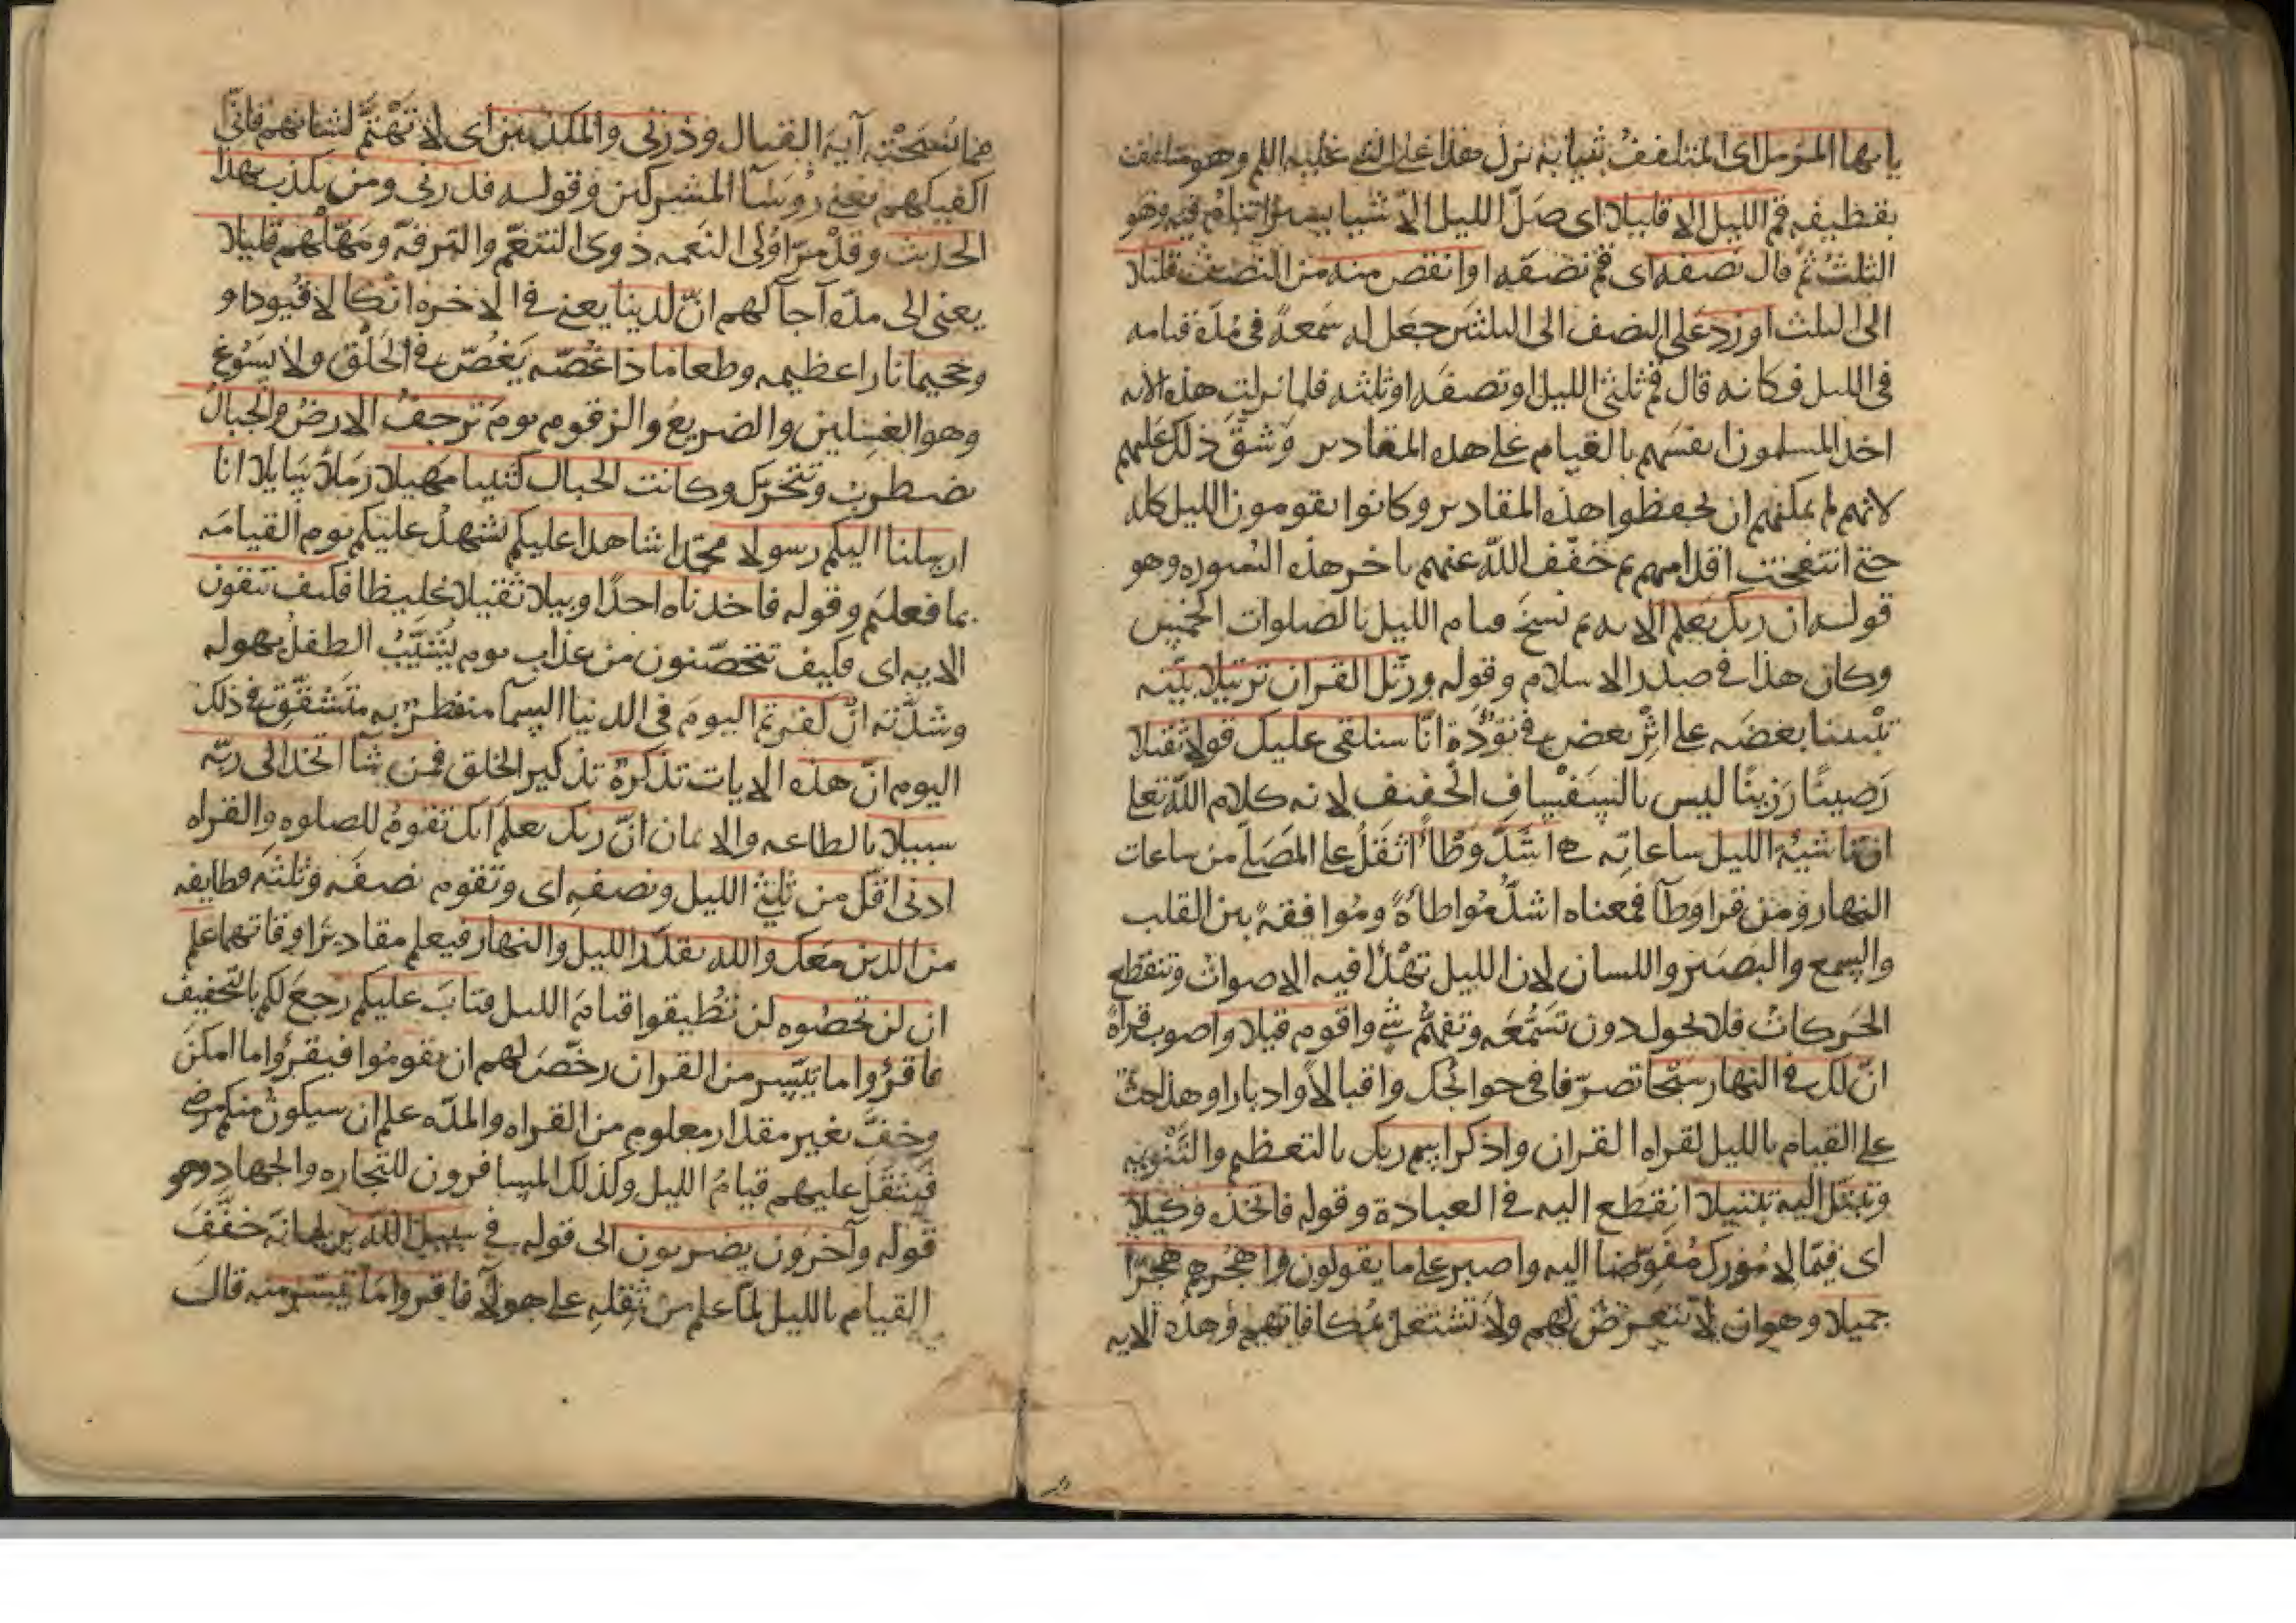 يا يها المزمل اى المتلفف بثيابه نزل هذا على النبي عليه السلم وهو متلفف
بقطيفه قم الليل الا قليلا اى صَلّ الليل الا شيا يسيرا تنام فيه وهو
الثلث ثم قال نصفه اى قم نصفه او انقص منه من النصف قليلا
الى الثلث او زد على النصف الى الثلثين جعل له سَعةً في مُدة قيامه
في الليل فكانه قال قم ثلثي الليل او نصفَه او ثلثه فلما نزلت هذه الايه
اخذ المسلمون انفسهم بالقيام على هذه المقادير وَشقّ ذلك عليهم
لانهم لم يمكنهم ان يحفظوا هذه المقادير وكانوا يقومون الليل كله
حتى انتفخت اقدامهم ثم خفّف اللّه عنهم باخر هذه السوره وهو
قوله ان ربك يعلم الايه ثم نسخ قيام الليل بالصلوات الخمس
وكان هذا في صدر الاسلام وقوله ورتّل القران ترتيلا بيّنه
تبيينا بعضَه على اثْرِ بعض في تُؤدة انّا سنلقى عليك قولا ثقيلا
رَصينًا رَزينًا ليس بالسَفْسافِ الخفيف لانه كلام اللّه تعالى
انّ ناشئة الليل ساعاته هي اشَدّ وَطْأً اثقلُ على المصَلى من ساعات
النهار ومَن قرا وِطاً فمعناه اشدّ مُواطاةً ومُوافقةً بين القلب
والسمع والبَصَر واللسان لان الليل تهْدَأ فيه الاصوات وتنقطع
الحَركات فلا يحول دون تَسَمُّعِه وتفهُّم شي واقوم قيلا واصوب قراة
انّ لك في النهار سَبْحًا تصرّفا في حوائجك واقبالاً وادبارا وهذا حثّ
على القيام بالليل لقراه القران واذكر اسم ربك بالتعظيم والتَّنْزيه
وتبتّل اليه تبتيلا انقطع اليه في العبادة وقوله فاتخذه وكيلا
اى قيّما لامُورك مُفَوِّضا اليه واصبر على ما يقولون واهجُرهم هجرًا
جميلا وهو ان لا تتعرض لهم ولا تشتغل بمكافاتهم وهذه الايه
مما نسَخَتْه آية القتال وذرني والمكذبين اى لا تَهْتمَّ لشانهم فانّي
اكفيكهم يعني رؤسآ المشركين وقوله فذرني ومن يكذب بهذا
الحديث وقد مَرّ اولى النعمه ذوى التنعّم والترفّه ومَهّلهم قليلا
يعني الى مدّه آجالهم انّ لدينا يعني في الاخره انكالا قُيودا و
وجحيما نارا عظيمه وطعاما ذا غُصّه يَغُصّ به في الحَلْق ولا يَسُوغ
وهو الغسلين والضريعُ والزقوم يومَ ترجفُ الارضُ والجبالُ
تضطرب وتتحرّك وكانت الجبال كثيبا مهيلا رَملاً سَايلا انا
ارسلنا اليكم رسولا محمّدا شاهدا عليكم يشهدُ عليكم يوم القيامَه
بما فعلتم وقوله فاخذناه اخذًا وبيلا ثقيلا غليظا فكيف تتقون
الايه اى فكيف تتحصّنون من عذاب يوم يُشَيّبُ الطفلُ بهوله
وشدّته انْ كفرتم اليومَ في الدنيا السمآ منفطرٌ به متَشقّق في ذلك
اليوم انّ هذه الايات تذكرةٌ تذكير الخلق فمن شآ اتخذ الى ربّه
سبيلا بالطاعه والايمان انّ ربك يعلم انك تقومُ للصلوه والقراه
ادنى اقلّ من ثلثي الليل ونصفِه اى وتقوم نصفَه وثلثه وطايفه
من الذين معك والله يقدّر الليل والنهار فيعلم مقاديرَ اوقاتهما علم
ان لن تحصُوه لن تُطيقوا قيامَ الليل فتابَ عليكم رجعَ لكم بالتخفيف
فاقرؤوا ما تيسّر من القران رخّصَ لهم ان يقوموا فيقرؤا ما امكنَ
وخفّ بغير مقدار معلوم من القراه والمدّه علم ان سيكون منكم مرضى
فيَثقل عليهم قيامُ الليل وكذلك المسافرون للتجاره والجهاد وهو
قوله وآخرون يضربون الى قوله في سبيل اللّه يريد انه خفّفَ
القيام بالليل لمّا علم من ثقِلِه على هولآ فاقروا ما تيسّر منه قال